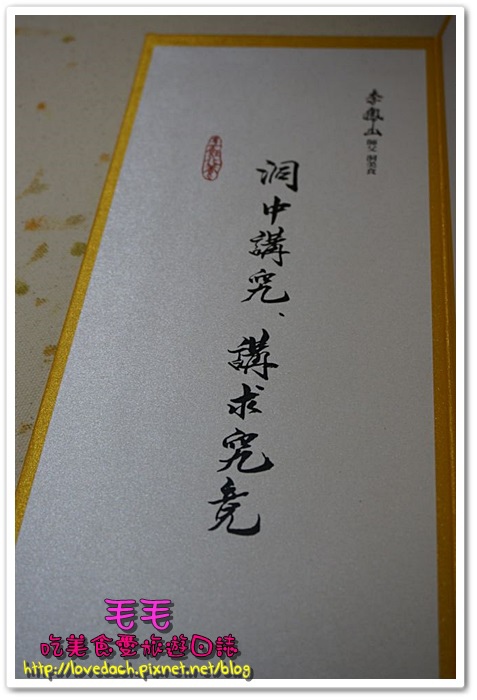 李鳳山師父 洞美食
洞中講究、講求究竟
毛毛
吃美食愛旅遊日誌
http://lovedach.pixnet.net/blog